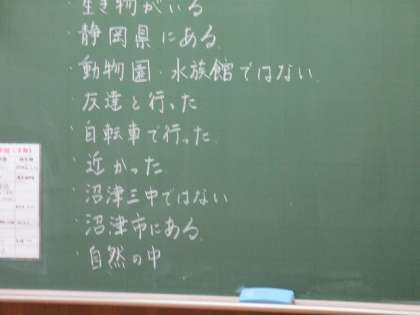 ・生き物がいる
・静岡県にある
・動物園・水族館ではない
・友達と行った
・自転車で行った
・近かった
・沼津三中ではない
・沼津市にある
・自然の中